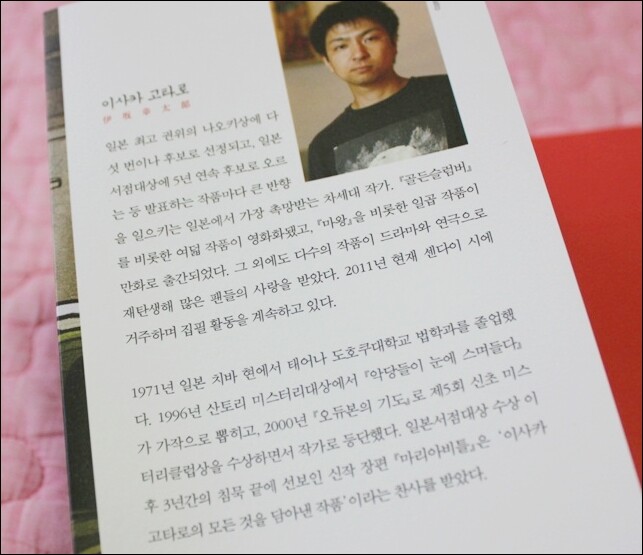 이사카 고타로
伊坂幸太郎
일본 최고 권위의 나오키상에 다
섯 번이나 후보로 선정되고, 일본
서점대상에 5년 연속 후보로 오르
는 등 발표하는 작품마다 큰 반향
을 일으키는 일본에서 가장 촉망받는 차세대 작가. 『골든슬럼버』
를 비롯한 여덟 작품이 영화화됐고, 『마왕』을 비롯한 일곱 작품이
만화로 출간되었다. 그 외에도 다수의 작품이 드라마와 연극으로
재탄생해 많은 팬들의 사랑을 받았다. 2011년 현재 센다이 시에
거주하며 집필 활동을 계속하고 있다.
1971년 일본 치바 현에서 태어나 도호쿠대학교 법학과를 졸업했
다. 1996년 산토리 미스터리대상에서 『악당들이 눈에 스며들다』
가 가작으로 뽑히고, 2000년 『오듀본의 기도』로 제5회 신초 미스
터리클럽상을 수상하면서 작가로 등단했다. 일본서점대상 수상 이
후 3년간의 침묵 끝에 선보인 신작 장편 『마리아비틀』은 ‘이사카
고타로의 모든 것을 담아낸 작품’이라는 찬사를 받았다.